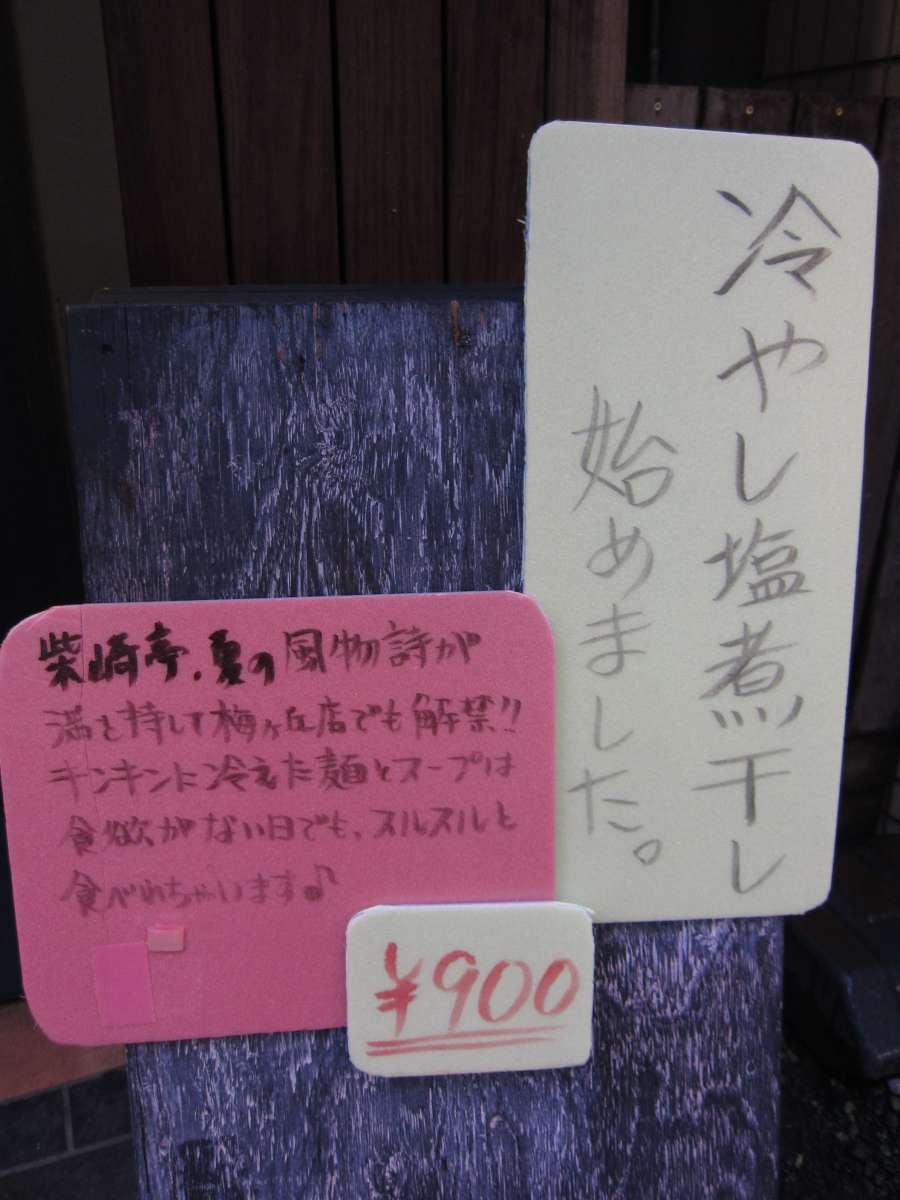 冷やし塩煮干し
始めました。
柴崎亭、夏の風物詩が
満を持して梅ヶ丘店でも解禁!!
キンキンに冷えた麺とスープは
食欲がない日でも、スルスルと
食べれちゃいます♪
¥900